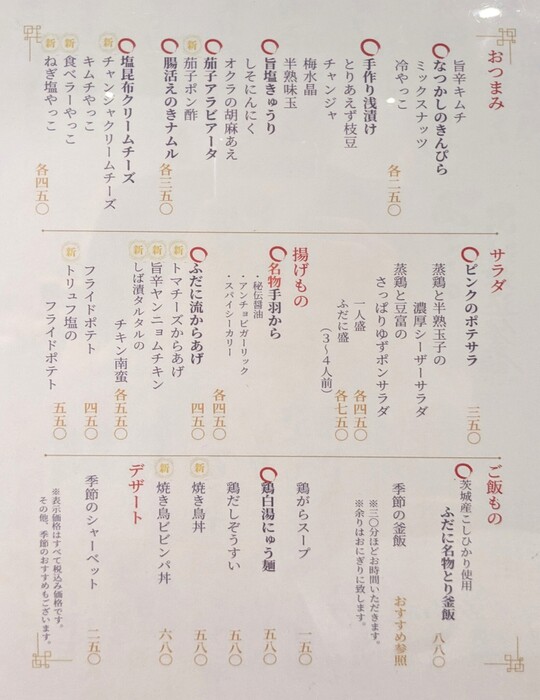 おつまみ
旨辛キムチ
なつかしのきんぴら
ミックスナッツ
冷やっこ
各二五〇
手作り浅漬け
とりあえず枝豆
チャンジャ
梅水晶
半熟味玉
旨塩きゅうり
しそにんにく
オクラの胡麻あえ
茄子アラビアータ
新 茄子ポン酢
腸活えのきナムル
各三五〇
塩昆布クリームチーズ
新 チャンジャクリームチーズ
キムチやっこ
新 食べラーやっこ
新 ねぎ塩やっこ
各四五〇
サラダ
ピンクのポテサラ
三五〇
蒸鶏と半熟玉子の
濃厚シーザーサラダ
蒸鶏と豆富の
さっぱりゆずポンサラダ
一人盛 各四五〇
ふだに盛 各七五〇
（３〜４人前）
揚げもの
名物手羽から
・秘伝醤油
・アンチョビガーリック
・スパイシーカリー
各四五〇
ふだに流からあげ
四五〇
新 トマチーズからあげ
新 旨辛ヤンニョムチキン
新 しば漬タルタルの
チキン南蛮
各五五〇
フライドポテト
四五〇
新 トリュフ塩の
フライドポテト
五五〇
ご飯もの
茨城産こしひかり使用
ふだに名物とり釜飯
八八〇
季節の釜飯 おすすめ参照
※三〇分ほどお時間いただきます。
※余りはおにぎりに致します。
鶏がらスープ 一五〇
鶏白湯にゅう麺 五八〇
鶏だしぞうすい 五八〇
新 焼き鳥丼 五八〇
新 焼き鳥ビビンパ丼 六八〇
デザート
季節のシャーベット 二五〇
※表示価格はすべて税込み価格です。
その他、季節のおすすめもございます。